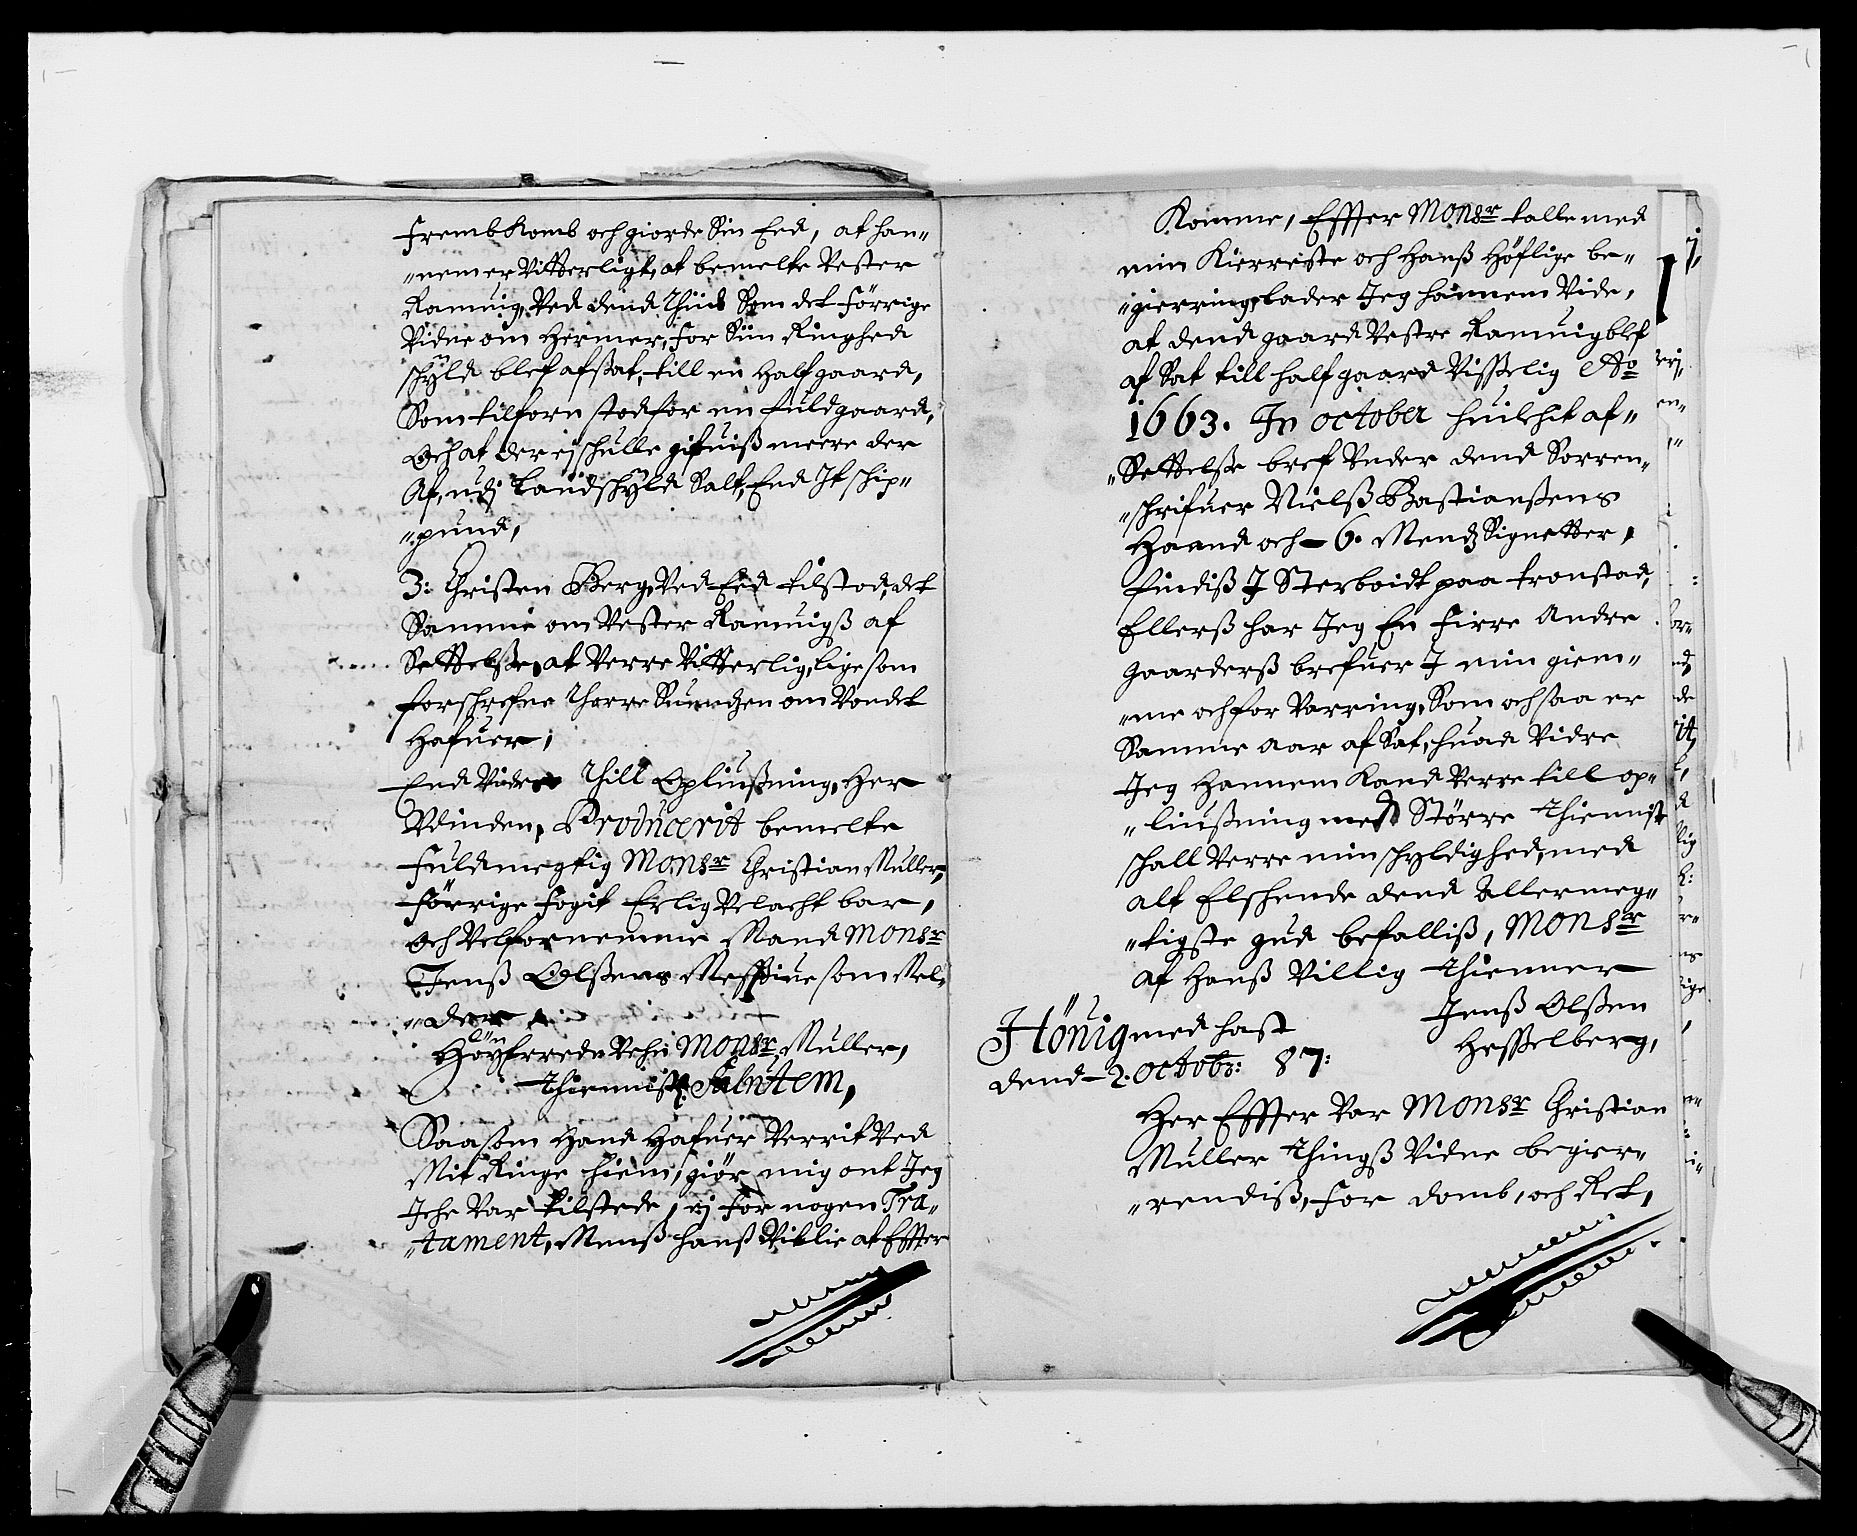 fremb komb och giorde Sin Eed, at han=
"nem er Vitterligt, at bemelte Vester
Ramuig, Ved dend Thiid Som det förrige
Vidne om hermer, for Siin Ringhed
schyld blef afsat, till en half gaard,
Som tilforn stod for en fuld gaard,
Och at der ej schulle gifuiß meere der
Af, udj Landschyld Salt, End It schip=
"pund,
3: Christen Berg, Ved Eed tilstod, det
Samme om Vester Ramuigß af
Settelsße, at Verre Vitterlig, lige som
forschrefne Tharre Suendsen om Vondet
Hafuer,
End Videre Thill Opliußning, Her
Vdinden, Producerit bemelte
fuldmegtig Monsr Christian Muller,
förrige fogit Erlig Velacht bar,
och Velfornemme Mand Monsr
Jenß Olßens Missive som Mel=
"der
Höyfrrede Vehn Monsr Muller,
Thiennist Salutem,
Saasom Hand Hafuer Verrit Ved
Mit Ringe hiem, giör mig ont Jeg
Iche Var tilstede, ej for nogen Tra=
"tament, Menß hanß Vitlie at Effter
Komme, Effter Monsr talle med
min Kierreste och Hanß Höflige be=
"gierring, lader Jeg hannem Vide,
at dend gaard Vestre Ramuig blef
af Sat till half gaard Visselig Ao
1663. In october huilchit af=
"Settelsße bref Vnder dend Sorren=
"schrifuer Nielß Bastianßens
Haand och 6. Mendz Signetter,
findiß J Sterboidt paa tronstad,
Ellerß har Jeg En firre Andre
gaarderß brefuer J min giem=
"me och for Varring, Som och saa er
Samme aar af Sat, huad Vidre
Jeg Hannem Kand Verre till op=
"liußning med Större Thiennist
schall Verre min schyldighed, med
alt Elschende dend Allermeg=
"tigste gud befalliß, Monsr
af Hanß Villig Thienner
Hönig med hast Jenß Olßen
dend 2. octobr: 87: Hesselberg,
Her Effter Var Monsr Christian
Muller Thingß Vidne begier=
"rendiß, for domb, och Ret,